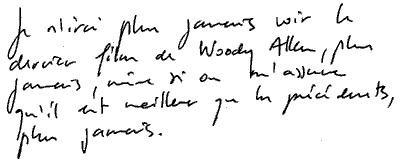 Je n'irai plus jamais voir le
dernier film de Woody Allen, plus
jamais, même si on m'assure
qu'il est meilleur que les précédents,
plus jamais.